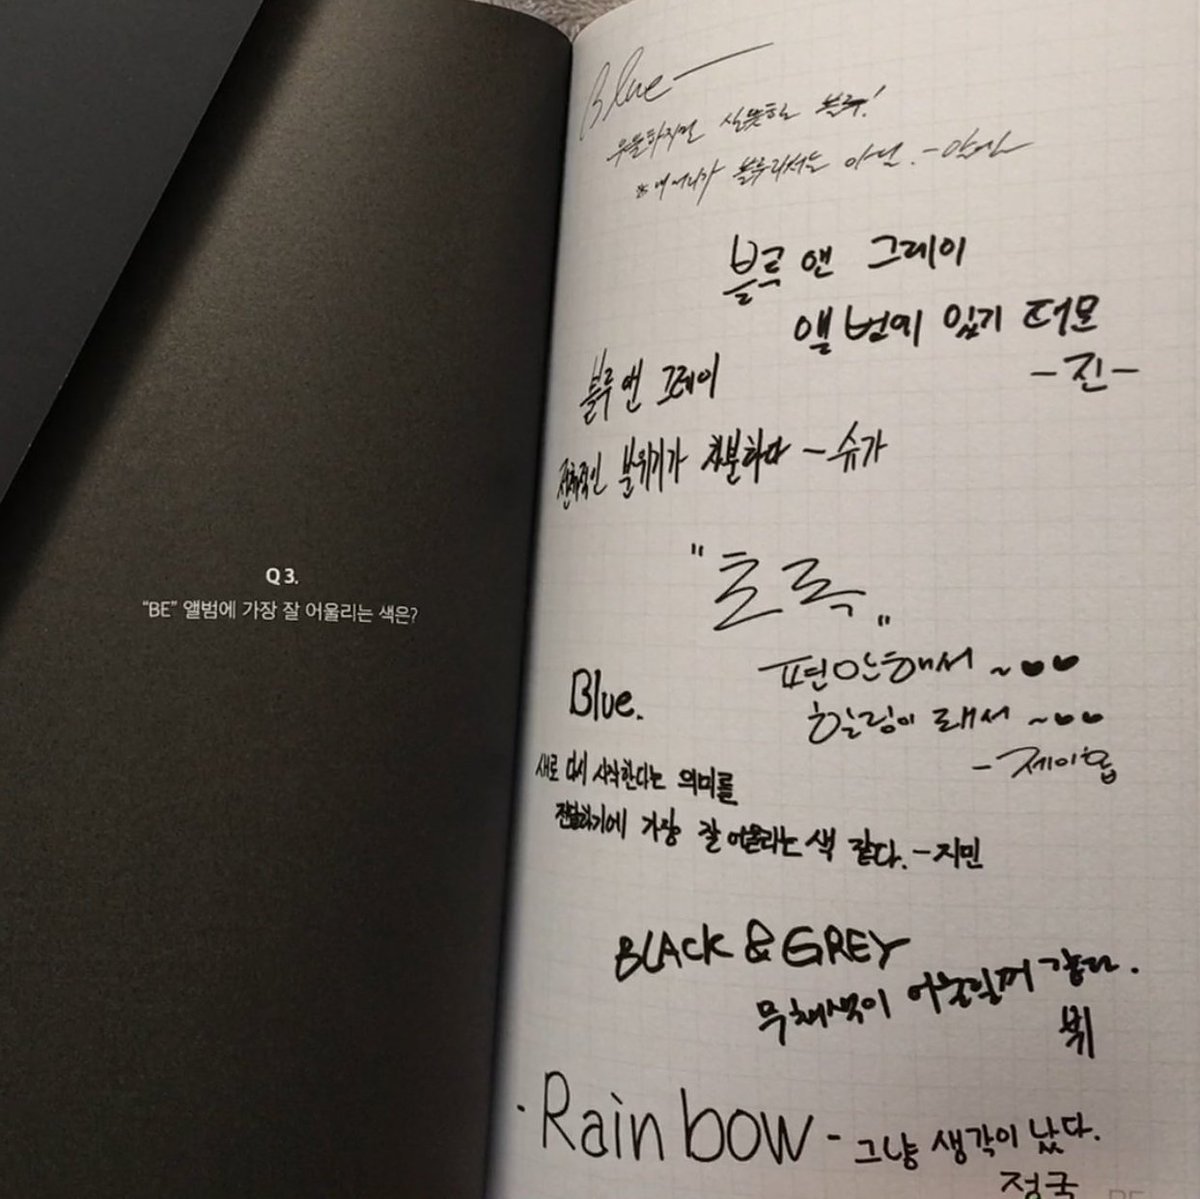 Q 3.
“BE” 앨범에 가장 잘 어울리는 색은?
Blue
우울하지만 산뜻한 블루!
※ 내 머리가 블루라서는 아님. -알엠
블루 앤 그레이
앨범에 있기 때문
-진-
블루 앤 그레이
전체적인 분위기가 차분하다 -슈가
"초록"
편안해서 ~
힐링이 돼서 ~
- 제이홉
Blue.
새로 다시 시작한다는 의미를
전달하기에 가장 잘 어울리는 색 같다. -지민
BLACK & GREY
무채색이 어울릴꺼 같다.
뷔
· Rainbow - 그냥 생각이 났다.
정국